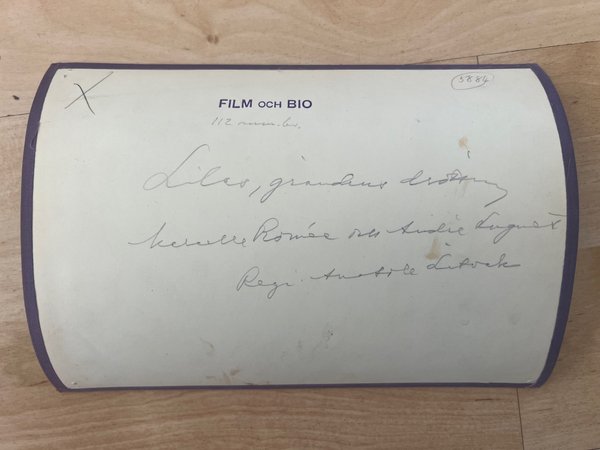 X
5884
FILM OCH BIO
112
Lilas, grändens drottning
Marcelle Romée och André Luguet
Regi: Anatole Litvak